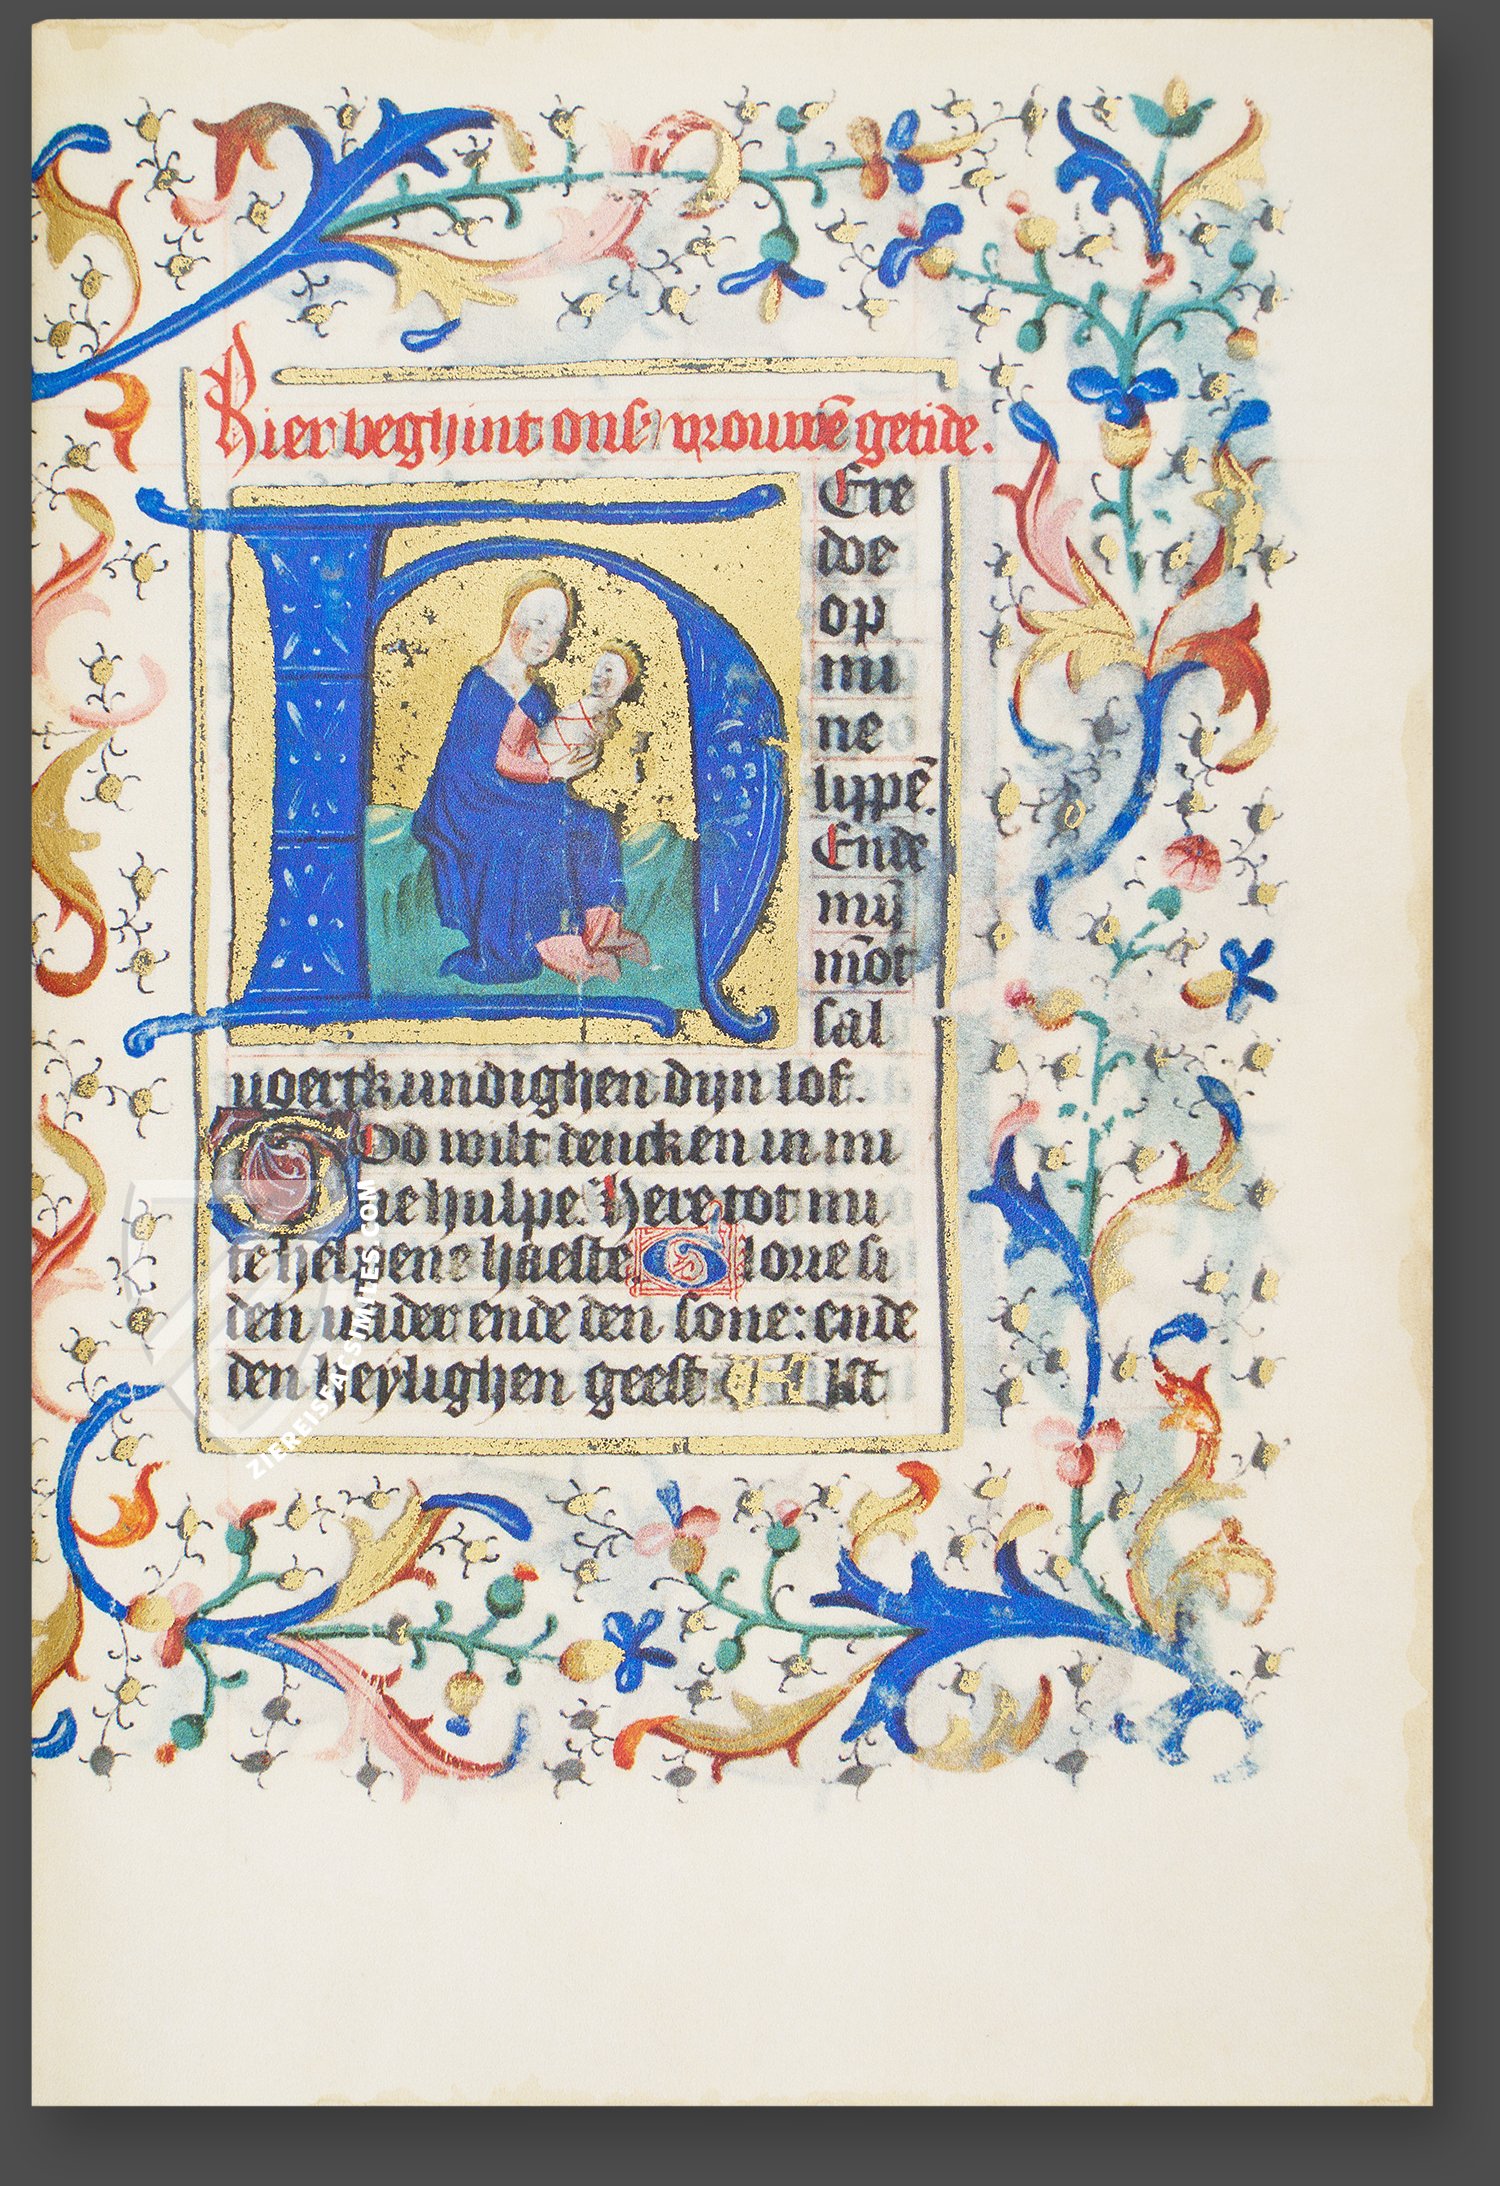 Hier beghint ons vrouwē getide.
HEre
doe
op
mi
ne
lippē.
Ende
mijn
mōt
sal
voertkundighen dijn lof.
GOd wilt dencken in mi
ne hulpe. Here tot mi
te helpene haeste. Glorie si
den vader ende den sone: ende
den heylighen geest Alst
ZIEREIS FACSIMILES.COM